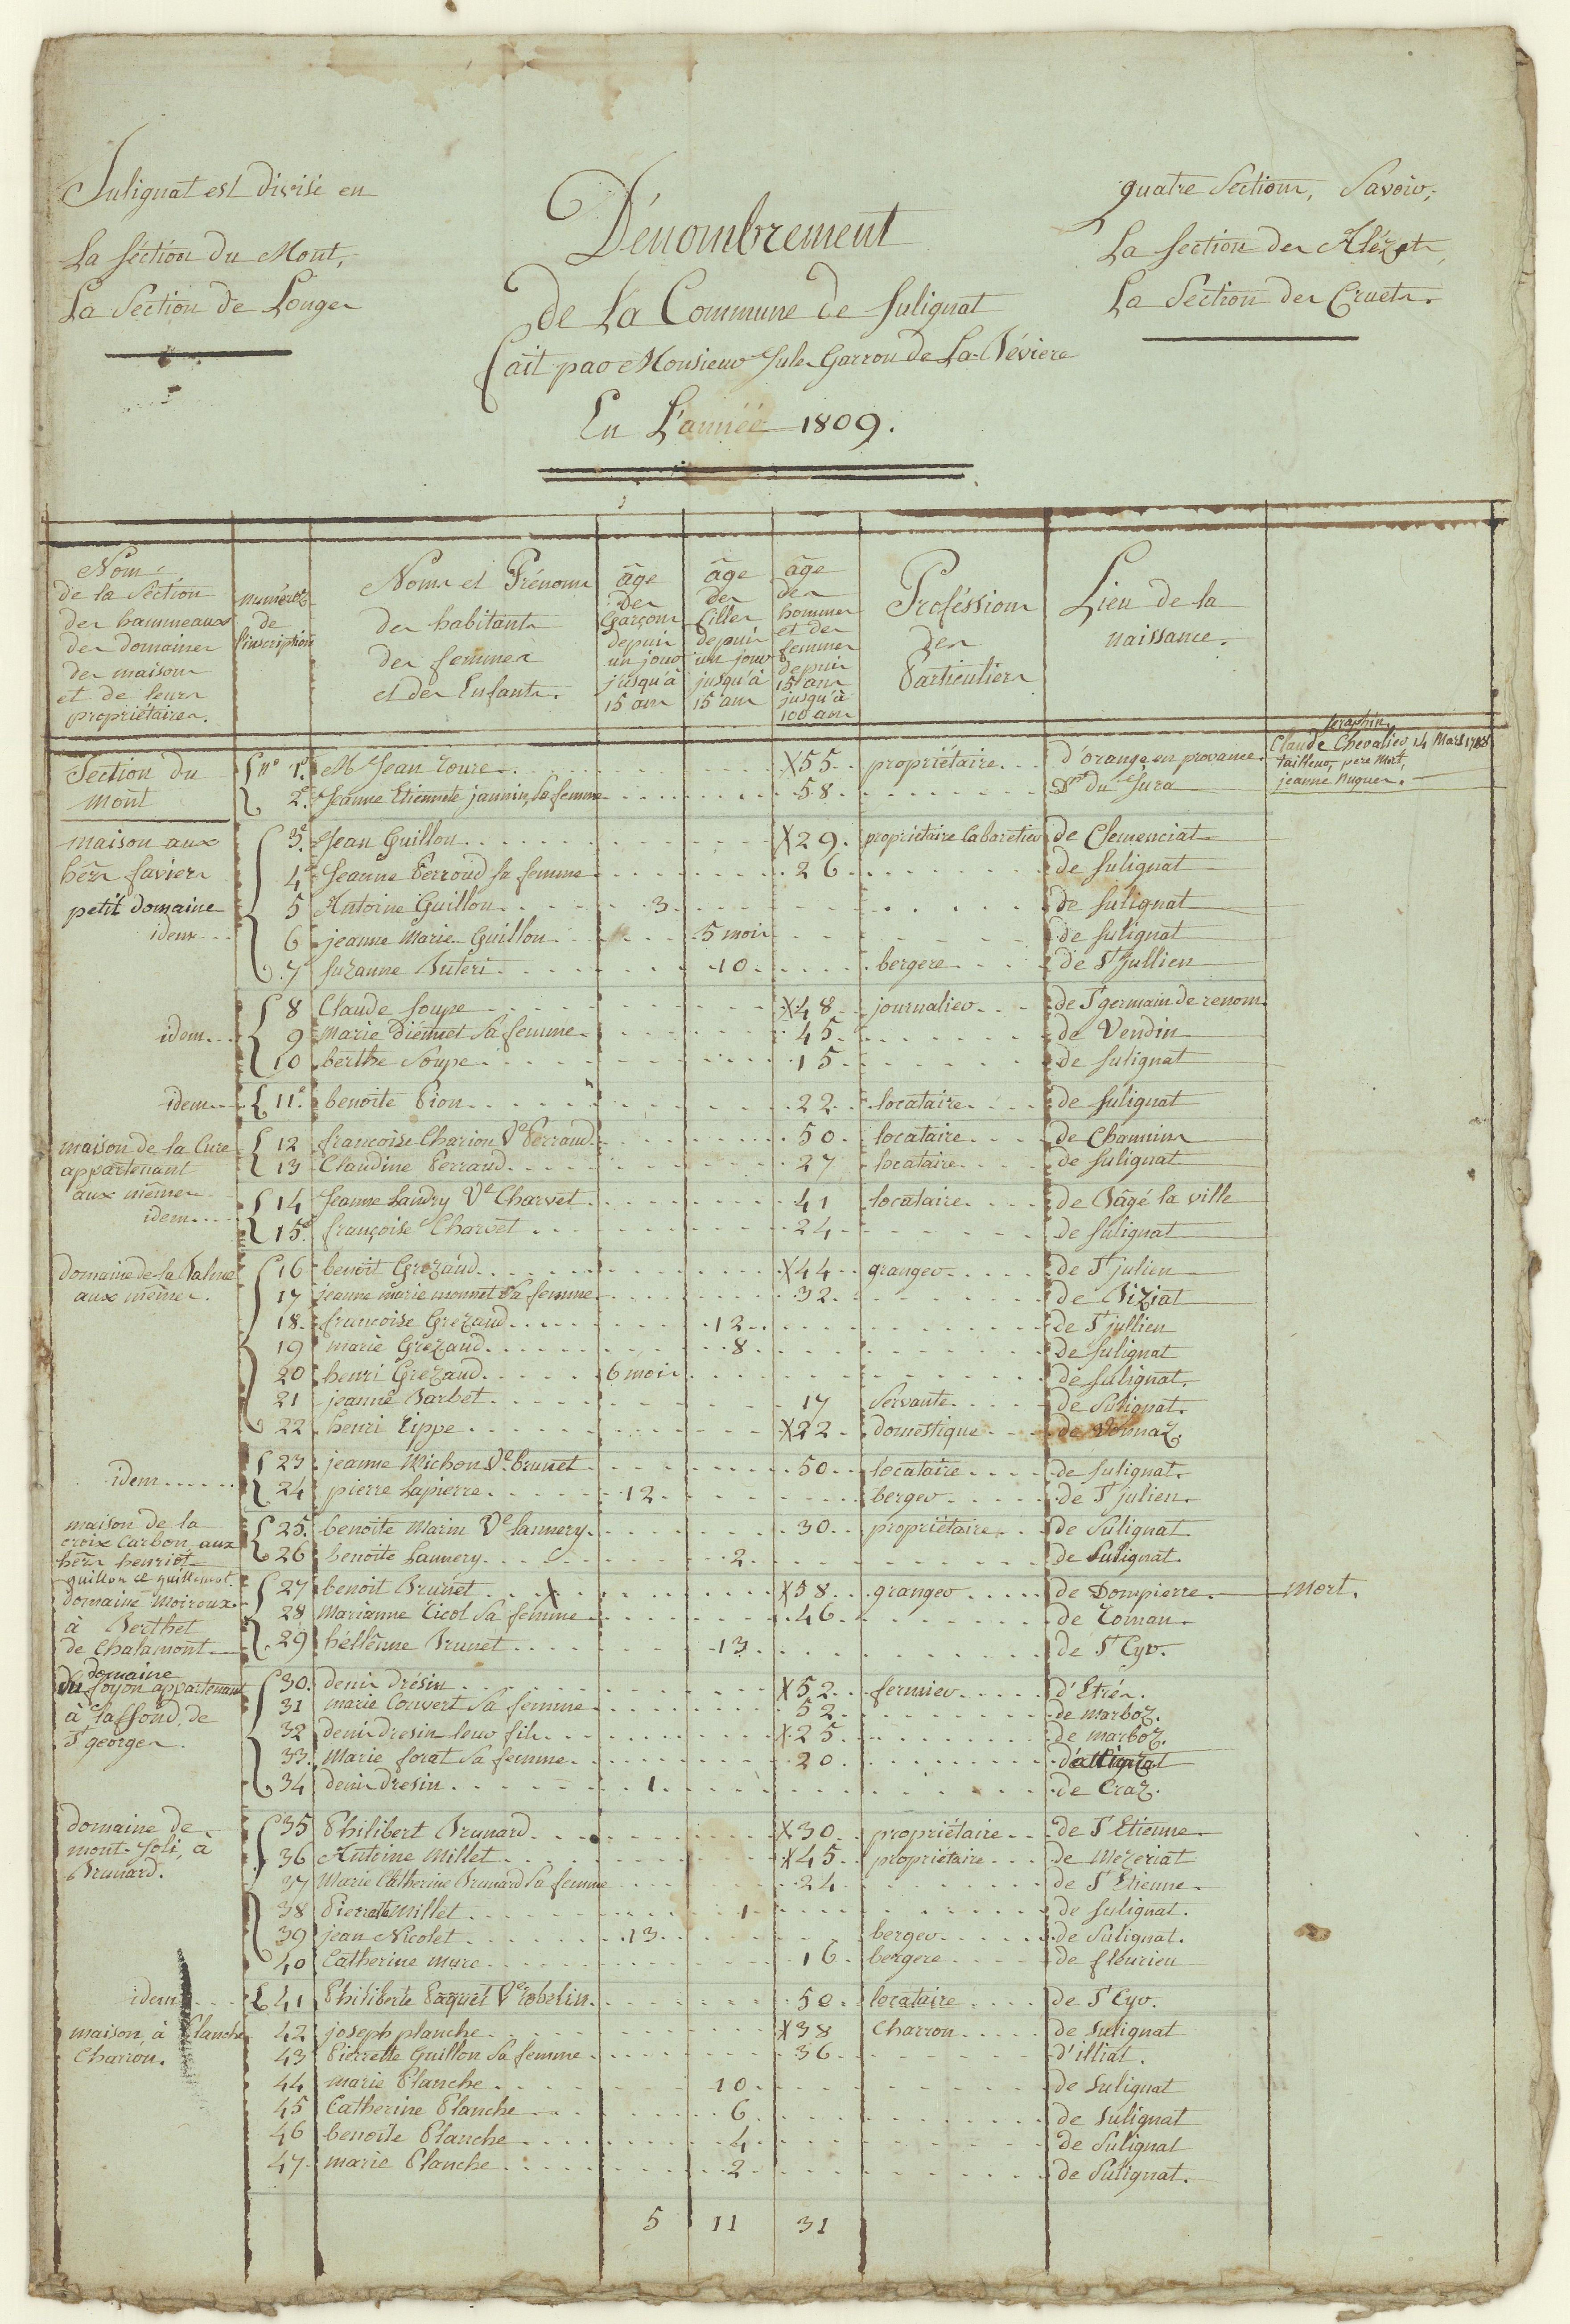 Sulignat est divisé en
La Section du Mont,
La Section de Longes
Dénombrement
de La Commune de Sulignat
fait par Monsieur Jules Garron de La Bévière
En L'année 1809.
quatre Sections, Savoir;
La Section des
La Section des Cruets.
Nom
de la Section
des hammeaux
des domaines
des maisons
et de leurs
propriétaires.
numéros
de
l'inscription
Noms et Prénoms
des habitants
des femmes
et des Enfants.
âge
des
Garçons
depuis
un jour
jusqu'à
15 ans
âge
des
filles
depuis
un jour
jusqu'à
15 ans
âge
des
hommes
et des
femmes
depuis
15 ans
jusqu'à
100 ans
Proféssions
des
Particuliers
Lieu de la
naissance.
Seraphin
Claude Chevalier 14 Mars 1788
tailleur, pere Mort,
jeanne Nuguer.
Section du
Mont
n° 1.er M Jean Toure X 55 propriétaire d'orange en provance
2.e Jeanne Etiennete jannin, Sa femme 58 Dt du Jura
maison aux
hérs faviers
petit domaine
idem
3.e Jean Guillon X 29 propriétaire Cabaretier de Clemenciat
4.e Jeanne Perroud Sa femme 26 de Sulignat
5 Antoine Guillon 3 de Sulignat
6 jeanne Marie Guillon 5 mois de Sulignat
7 Suzanne Buteri 10 bergere de St Jullien
idem
8 Claude Soupe X 48 journalier de St germain de renom
9 Marie Diennet Sa femme 45 de Vendin
10 berthe Soupe 15 de Sulignat
idem 11.e benoite Pion 22 locataire de Sulignat
maison de la Cure
appartenant
aux mêmes
12 francoise Charion Ve Perraud 50 locataire de Chanins
13 Claudine Perraud 27 locataire de Sulignat
idem
14 Jeanne Landry Ve Charvet 41 locataire de Bâgé la ville
15.e françoise Charvet 24 de Sulignat
domaine de la Balme
aux mêmes.
16 benoit Grezaud X 44 granger de St julien
17 jeanne marie monnet Sa femme 32 de Biziat
18 francoise Grezaud 12 de St jullien
19 marie Grezaud 8 de Sulignat
20 henri Grezaud 6 mois de Sulignat.
21 jeanne Barbet 17 Servante de Sulignat.
22 henri Tippe X 22 domestique de Vonnaz.
idem
23 jeanne Michon Ve brunet 50 locataire de Sulignat.
24 pierre Lapierre 12 berger de St julien.
maison de la
croix Carbon, aux
hérs henriot
guillon et guillemot.
25. benoite Marin Ve Lannery. 30 propriétaire de Sulignat
26 benoite Lannery 2 de Sulignat.
domaine Moiroux
à Berthet
de Chalamont
27 benoit Brunet X X 58 granger de Dompierre Mort.
28 Marianne Ticol Sa femme 46 de Roman
29 héllénne Brunet 13 de St Cyr.
domaine
du foyon appartenant
à Laffond, de
St georges.
30. denis drésin X 52 fermier d'Etrés.
31 marie Convert Sa femme 52 de Marboz.
32 denis dresin leur fils X 25 de marboz.
33. Marie forat Sa femme 20 d'attignat
34 denis dresin 1 de Craz.
domaine de
mont-Joli, à
Brunard.
35 Philibert Brunard X 30 propriétaire de St Etienne
36 Antoine Millet X 45 propriétaire de Mezeriat
37 Marie Catherine Brunard Sa femme 24 de St Etienne.
38 Pierrette Millet 1 de Sulignat.
39 jean Nicolet 13 berger de Sulignat.
40 Catherine Mure 16 bergere de fleurieu
idem 41 Philiberte Paquet Ve robelin. 50 locataire de St Cyr.
maison à Planche
Charron.
42 joseph planche X 38 Charron de Sulignat
43 Pierrette Guillon Sa femme 36 d'illiat.
44 marie Planche 10 de Sulignat
45 Catherine Planche 6 de Sulignat
46 benoite Planche 4 de Sulignat
47 marie Planche 2 de Sulignat.
5 11 31